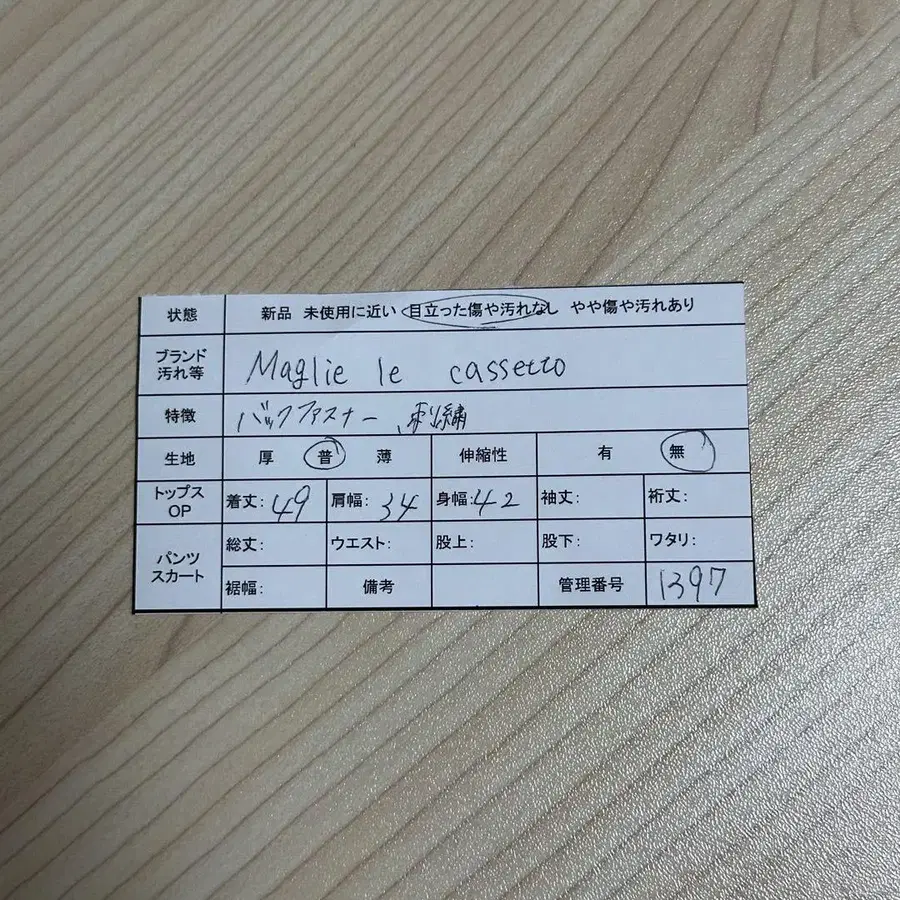 状態 新品 未使用に近い 目立った傷や汚れなし やや傷や汚れあり
ブランド
汚れ等 Maglie le cassetto
特徴 バックファスナー、刺繍
生地 厚 普 薄 伸縮性 有 無
トップス
OP 着丈:49 肩幅:34 身幅:42 袖丈: 裄丈:
パンツ
スカート 総丈: ウエスト: 股上: 股下: ワタリ:
裾幅: 備考 管理番号 1397